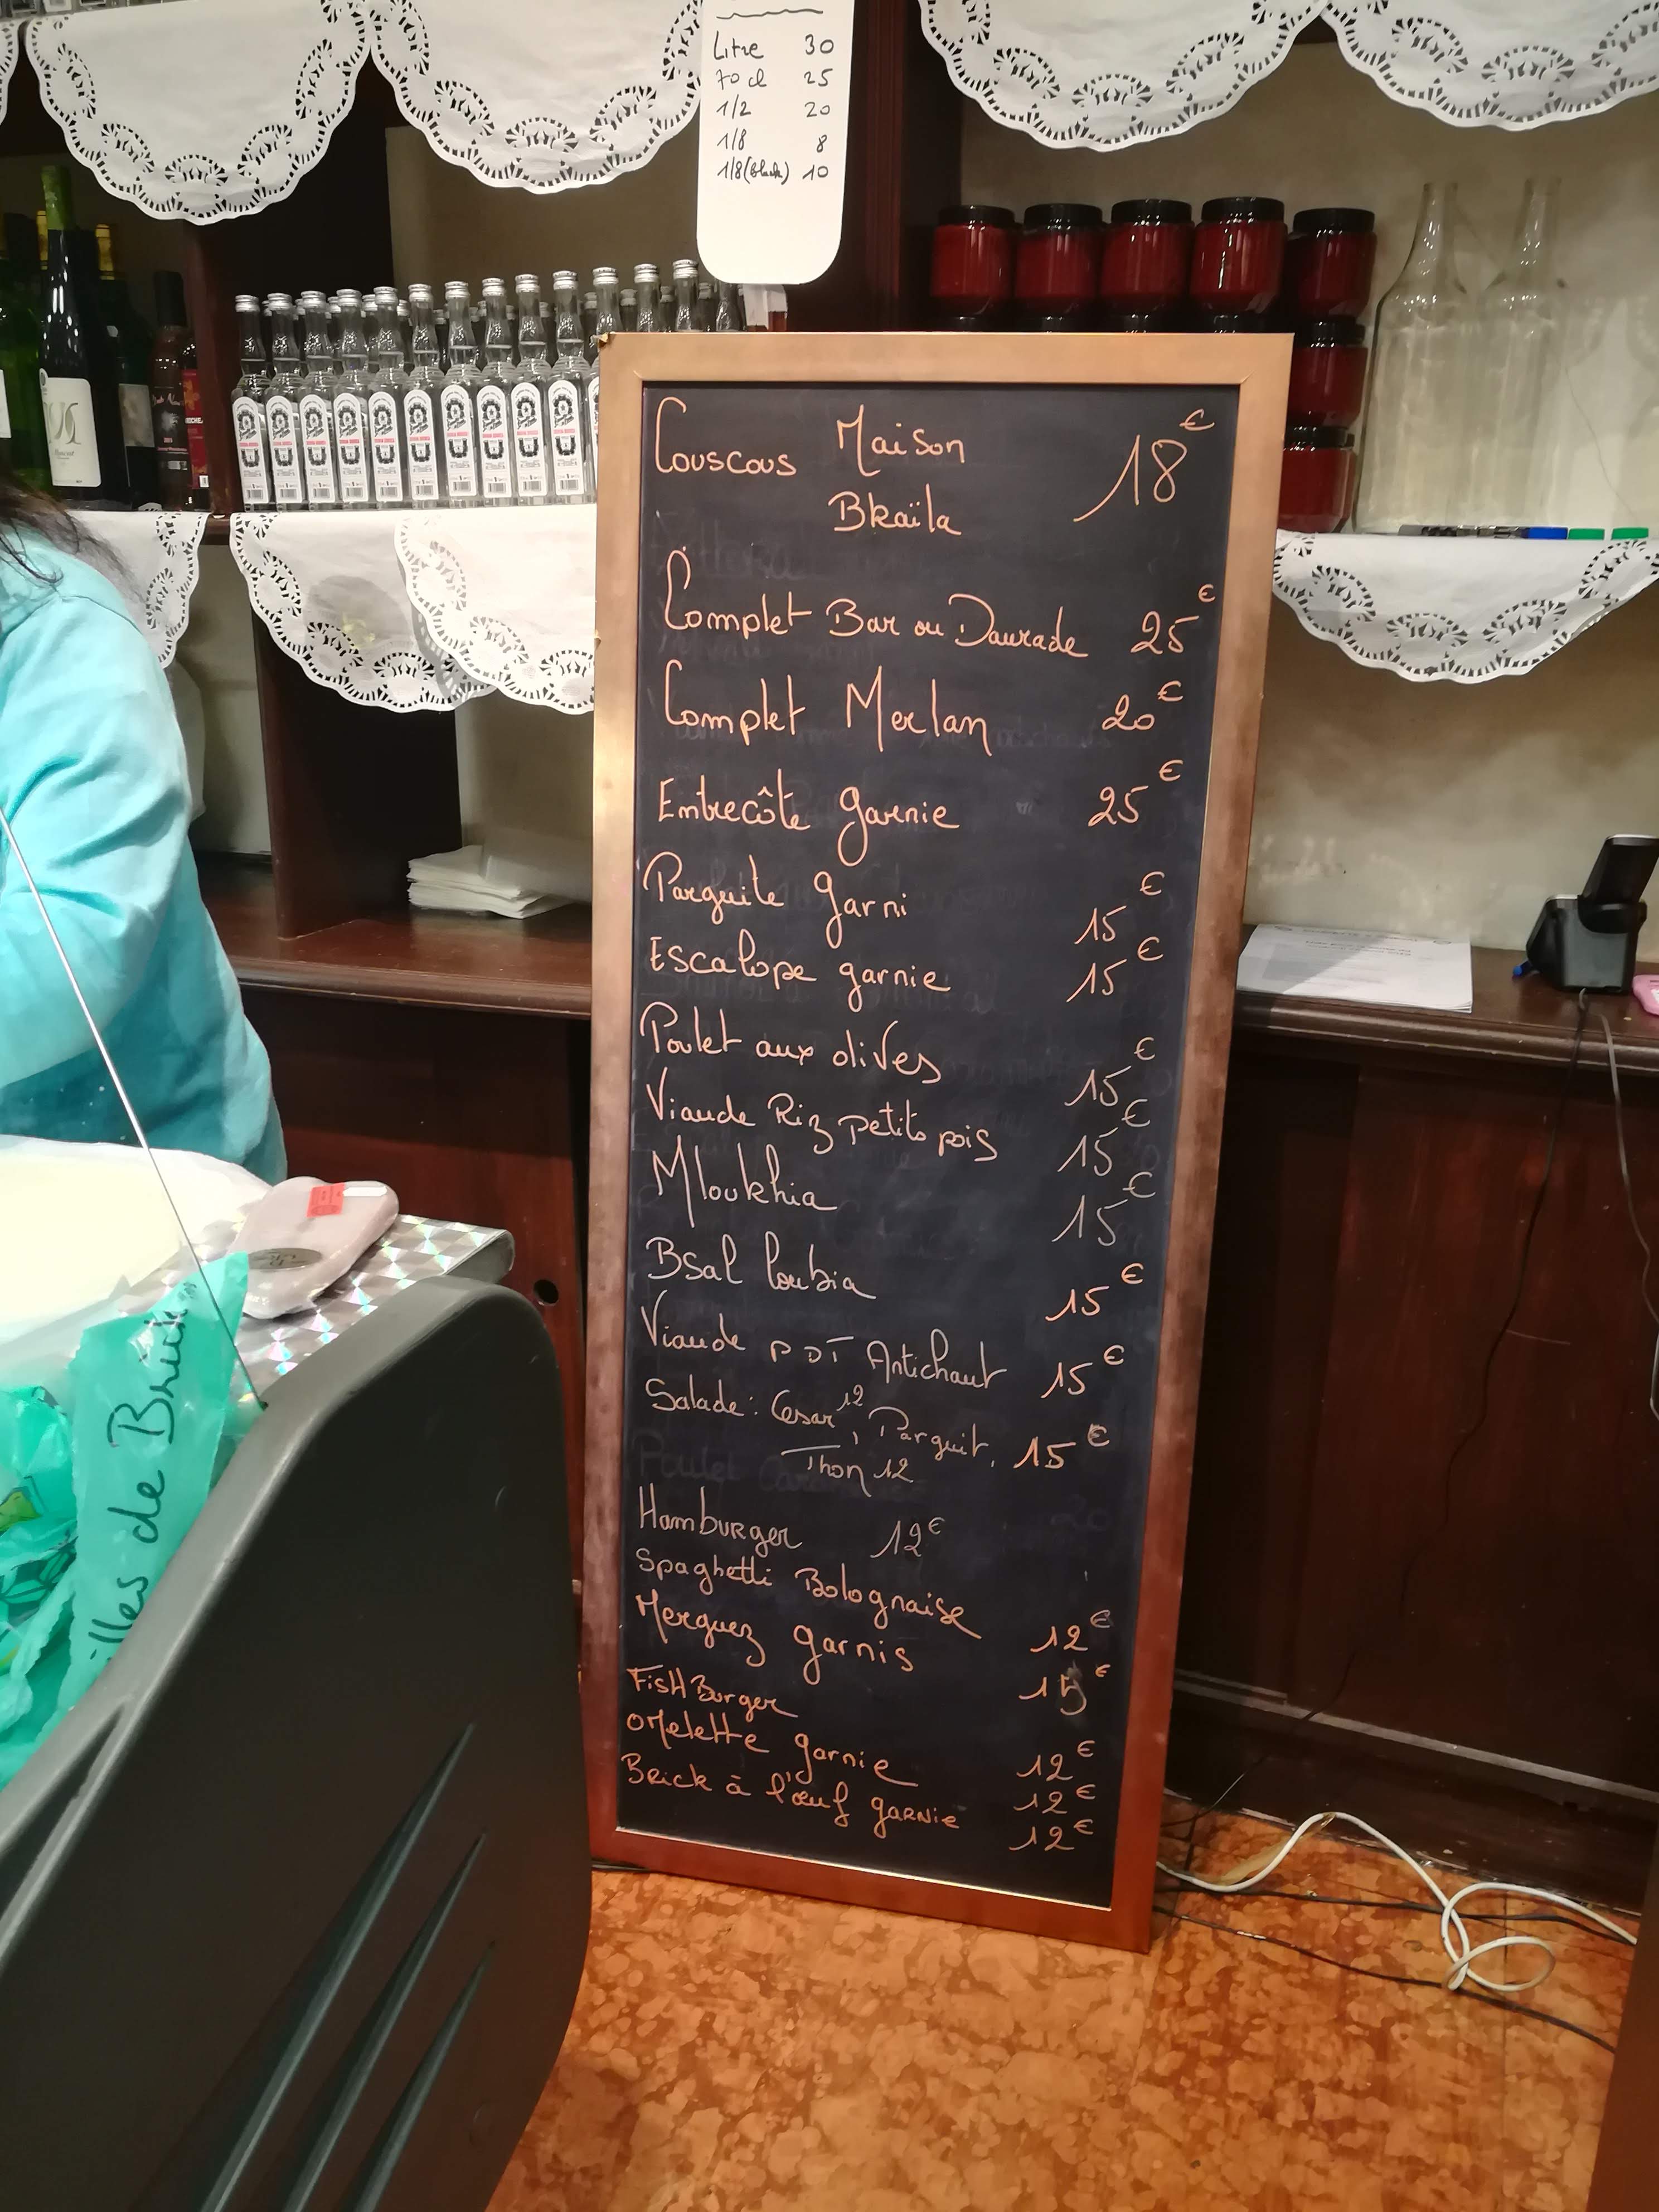 Litre 30
70 cl 25
1/2 20
1/8 8
1/8 (black) 10
Couscous Maison 18€
Bkaïla
Complet Bar ou Daurade 25€
Complet Merlan 20€
Entrecôte garnie 25€
Parguite garni 15€
Escalope garnie 15€
Poulet aux olives 15€
Viande Riz petits pois 15€
Mloukhia 15€
Bsal loubia 15€
Viande PDT Artichaut 15€
Salade: Cesar 12, Parguit, 15€
Thon 12
Hamburger 12€
Spaghetti Bolognaise 12€
Merguez garnis 15€
Fish Burger 12€
Omelette garnie 12€
Brick à l'œuf garnie 12€
illes de Brick